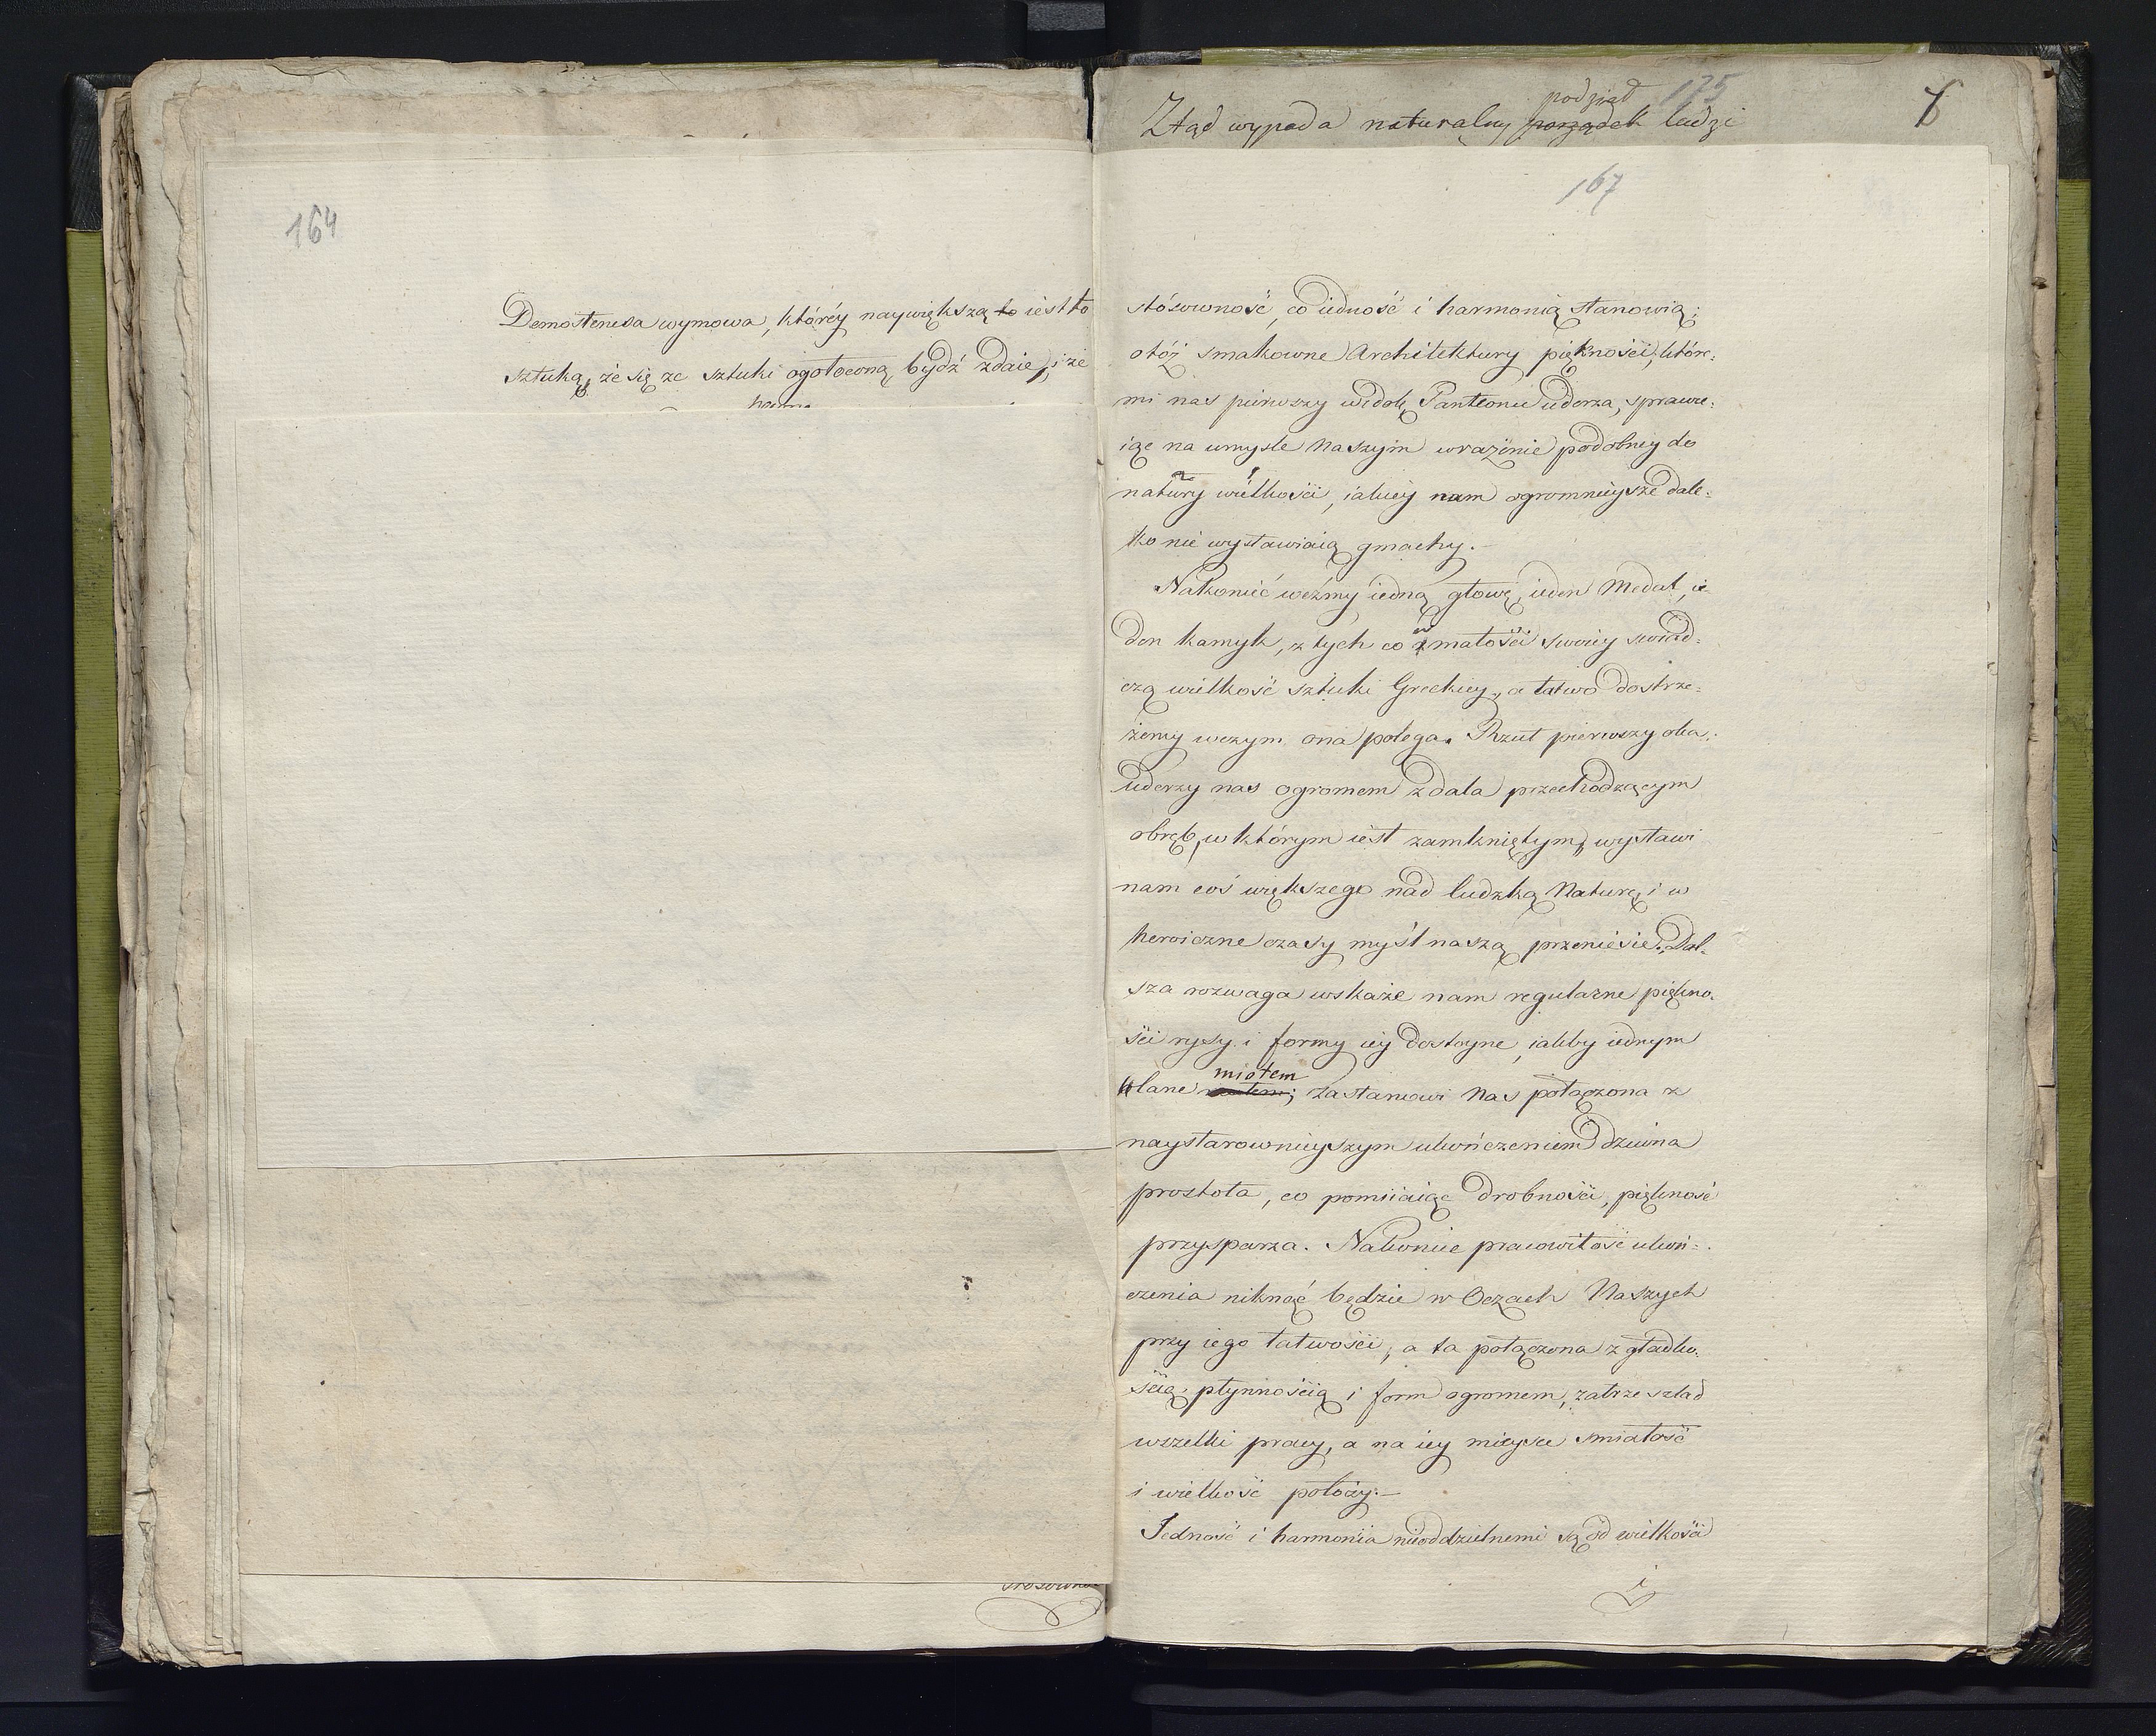 164
Demostenesa wymowa, którey naywiększą to iest to
sztuką, że się ze sztuki ogołoconą bydź zdaie, i że
175
podział
Ztąd wypada naturalny porządek ludzi
167
stósowność, co iedność i harmonią stanowią;
otóż smakowne Architektury piękności, które-
mi nas pierwszy widok Panteonu uderza, sprawu-
iąc na umyśle Naszym wrażenie podobney do
natury wielkości, iakiey nam ogromnieysze dale-
ko nie wystawiaią gmachy.-
Nakonieć weźmy iedną głowę, ieden Medal, ie-
den kamyk, z tych co w małości swoiey swiad-
czą wielkość sztuki Greckiey, a łatwo dostrze-
żemy wczym ona polega. Rzut pierwszy oka
uderzy nas ogromem zdala przechodzącym
obręb, w którym iest zamkniętym, wystawi
nam coś większego nad ludzką Naturę i w
heroiczne czasy myśl naszą przeniesie. Dal-
sza rozwaga wskaże nam regularne piękno-
ści rysy i formy iey dostoyne, iakby iednym
miotem
klane zastanowi Nas połączona z
naystarownieyszym ukończeniem dziwna
prostota, co pomiiaiąc drobności, piękność
przysparza. Nakonie pracowitość ukoń-
czenia niknąć będzie w Oczach Naszych
przy iego łatwości, a ta połączona z gładko-
ścią, płynnością i form ogromem, zatrze szlad
wszelki pracy, a na iey mieysce smiałość
i wielkość położy.-
Jedność i harmonia nieoddzielnemi są od wielkości
i